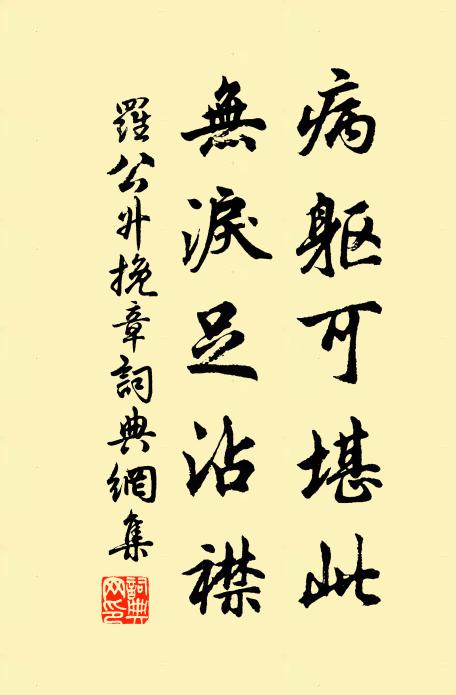 病軀可堪此
無淚足沾襟
羅公升挽章詞典網集
詞典網印